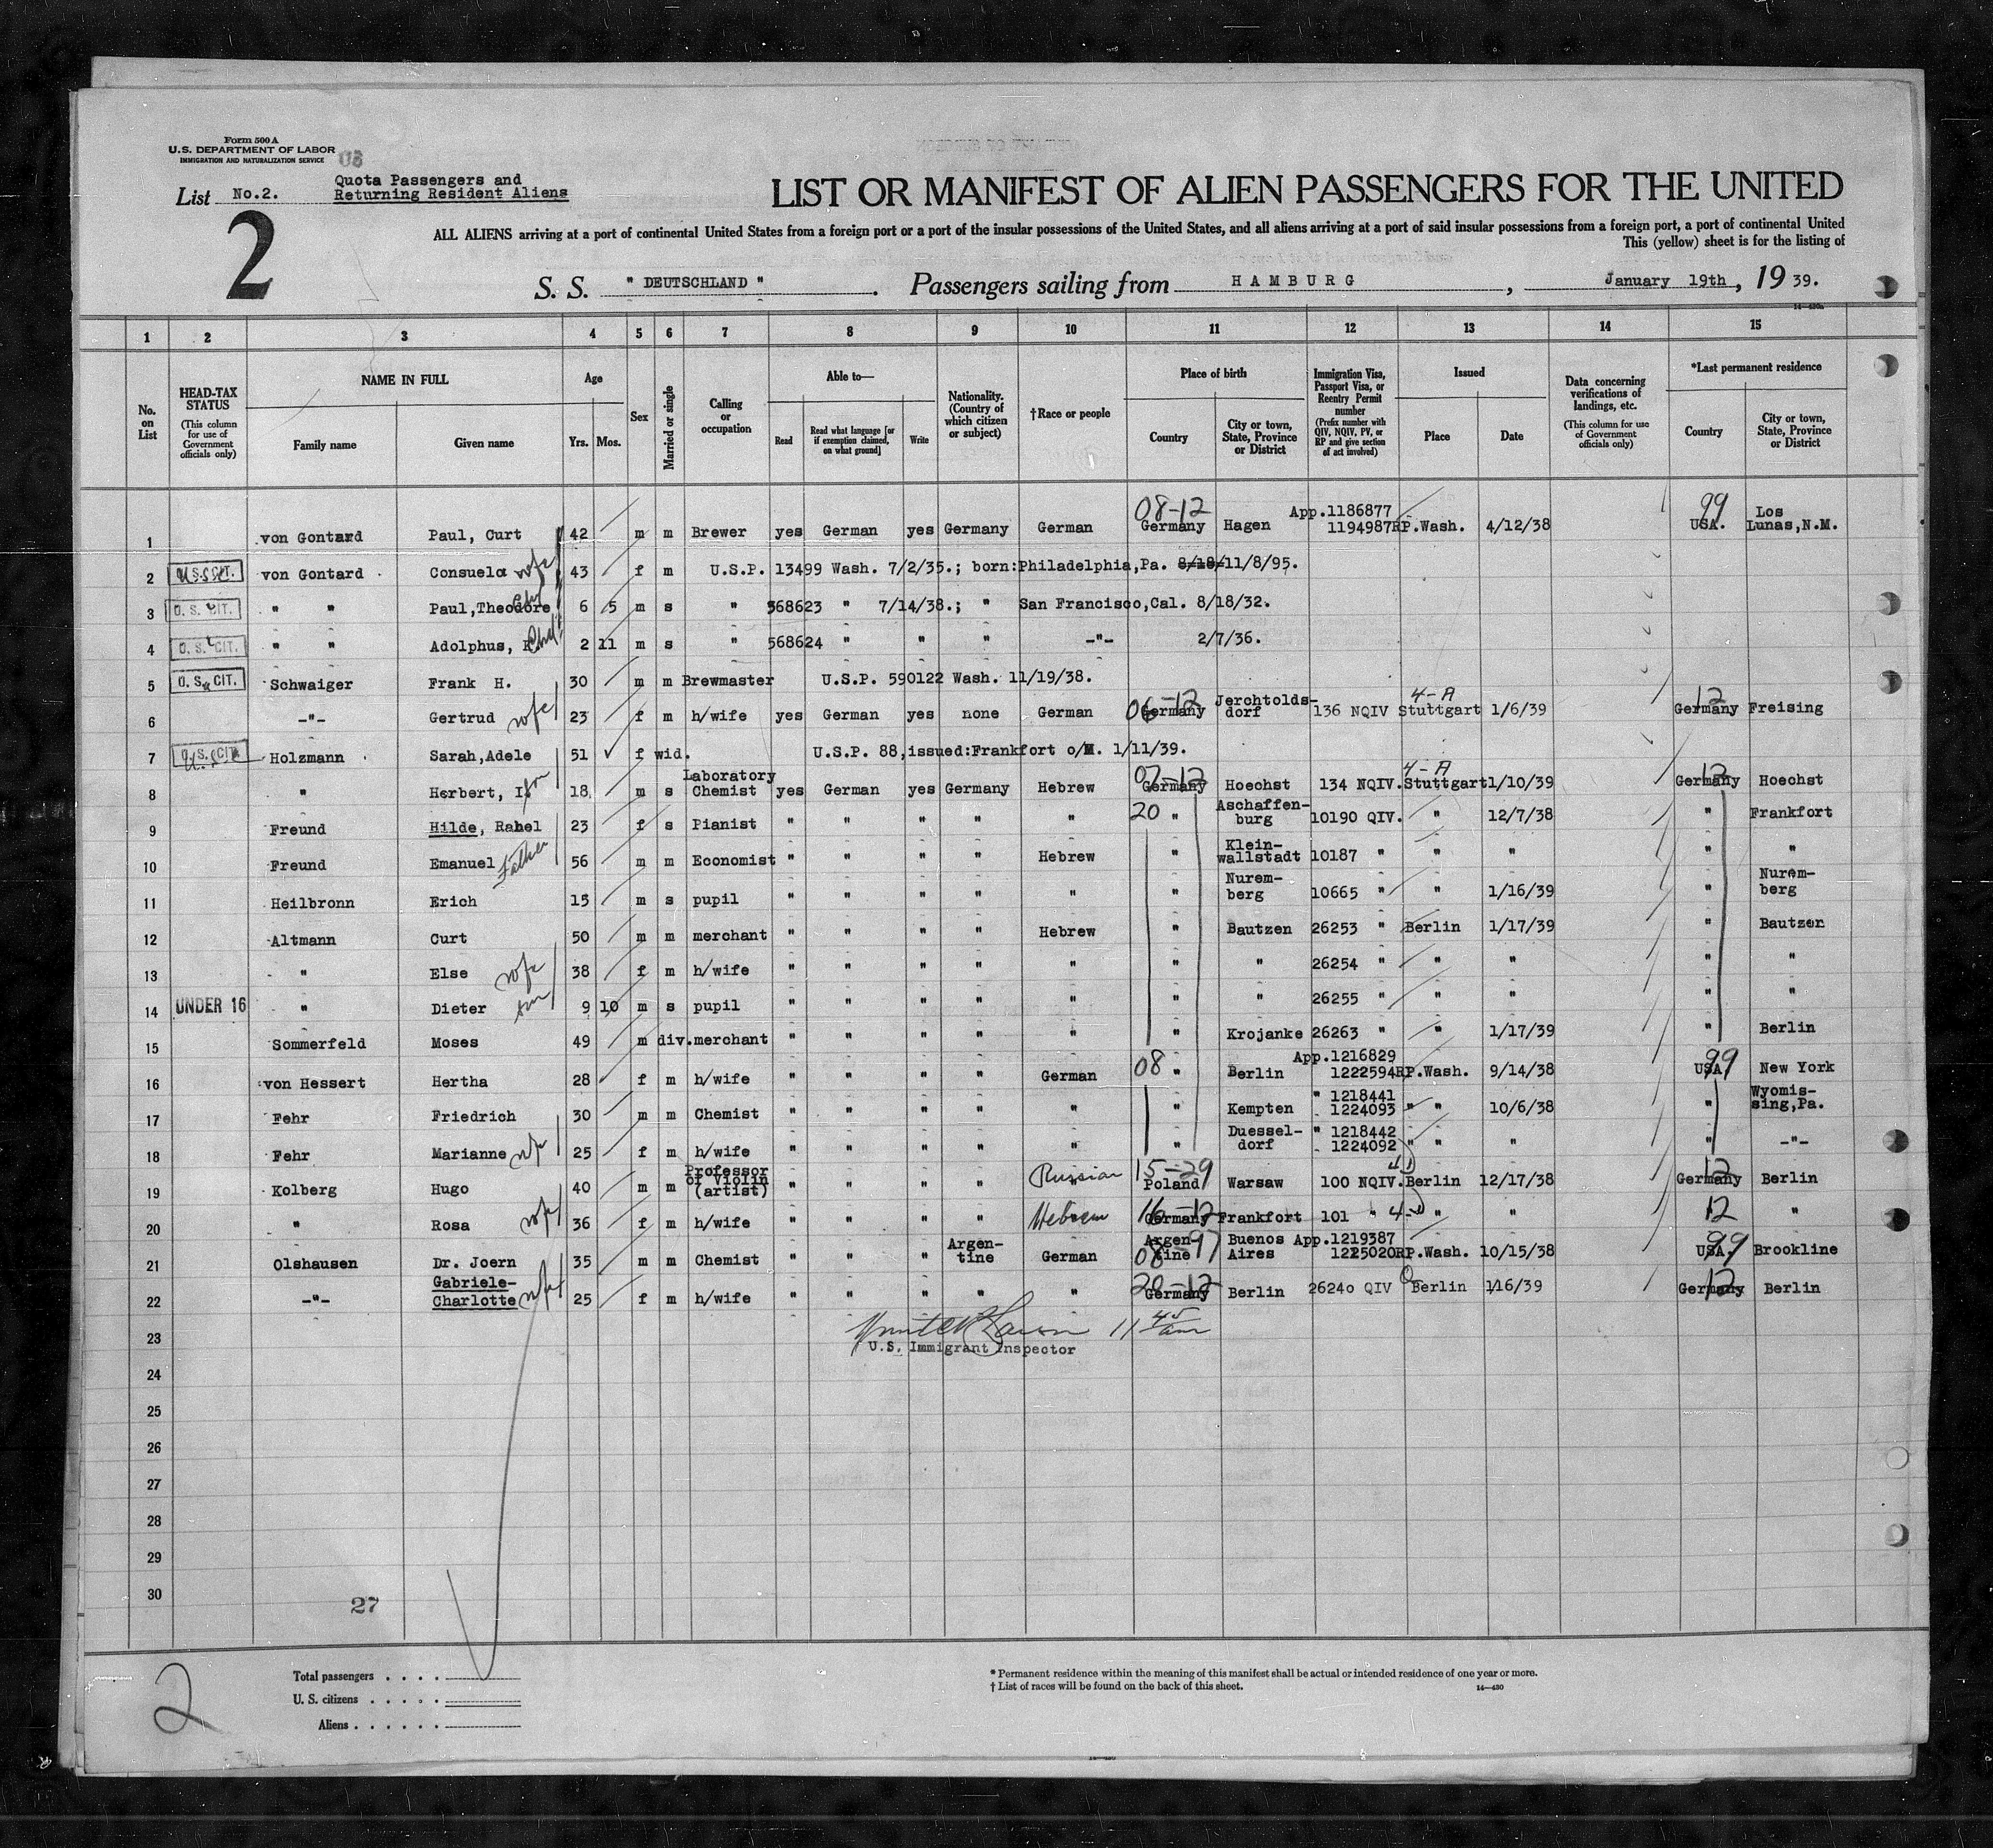 Form 500 A
U.S. DEPARTMENT OF LABOR
IMMIGRATION AND NATURALIZATION SERVICE
List No.2. Quota Passengers and
Returning Resident Aliens
2
LIST OR MANIFEST OF ALIEN PASSENGERS FOR THE UNITED
ALL ALIENS arriving at a port of continental United States from a foreign port or a port of the insular possessions of the United States, and all aliens arriving at a port of said insular possessions from a foreign port, a port of continental United
This (yellow) sheet is for the listing of
S. S. " DEUTSCHLAND " . Passengers sailing from HAMBURG , January 19th, 19 39.
1 2 3 4 5 6 7 8 9 10 11 12 13 14 15
No. on List
HEAD-TAX STATUS (This column for use of Government officials only)
NAME IN FULL Family name Given name
Age Yrs. Mos.
Sex
Married or single
Calling or occupation
Able to— Read Read what language [or if exemption claimed, on what ground] Write
Nationality. (Country of which citizen or subject)
†Race or people
Place of birth Country City or town, State, Province or District
Immigration Visa, Passport Visa, or Reentry Permit number (Prefix number with QIV, NQIV, PV, or RP and give section of act involved)
Issued Place Date
Data concerning verifications of landings, etc. (This column for use of Government officials only)
*Last permanent residence Country City or town, State, Province or District
1 von Gontard Paul, Curt 42 m m Brewer yes German yes Germany German 08-12 Germany Hagen App.1186877 1194987RP.Wash. 4/12/38 99 USA. Los Lunas,N.M.
2 U.S. CIT. von Gontard Consuelo wife 43 f m U.S.P. 13499 Wash. 7/2/35.; born:Philadelphia,Pa. 8/18/ 11/8/95.
3 U.S. CIT. " " Paul,Theodore 6 5 m s " 568623 " 7/14/38.; " San Francisco,Cal. 8/18/32.
4 U.S. CIT. " " Adolphus, 2 11 m s " 568624 " " " -"- 2/7/36.
5 U.S. CIT. Schwaiger Frank H. 30 m m Brewmaster U.S.P. 590122 Wash. 11/19/38.
6 -"- Gertrud wife 23 f m h/wife yes German yes none German 06-12 Germany Jerchtolds-dorf 136 NQIV 4-A Stuttgart 1/6/39 12 Germany Freising
7 U.S. CIT. Holzmann Sarah,Adele 51 f wid. U.S.P. 88,issued:Frankfort o/M. 1/11/39.
8 " Herbert, I. son 18 m s Laboratory Chemist yes German yes Germany Hebrew 07-12 Germany Hoechst 134 NQIV. 4-A Stuttgart 1/10/39 12 Germany Hoechst
9 Freund Hilde, Rahel 23 f s Pianist " " " " " 20 " Aschaffen-burg 10190 QIV. " 12/7/38 " Frankfort
10 Freund Emanuel Father 56 m m Economist " " " " Hebrew " Klein-wallstadt 10187 " " " " "
11 Heilbronn Erich 15 m s pupil " " " " " " Nurem-berg 10665 " " 1/16/39 " Nurem-berg
12 Altmann Curt 50 m m merchant " " " " Hebrew " Bautzen 26253 " Berlin 1/17/39 " Bautzen
13 " Else wife 38 f m h/wife " " " " " " " 26254 " " " " "
14 UNDER 16 " Dieter son 9 10 m s pupil " " " " " " " 26255 " " " " "
15 Sommerfeld Moses 49 m div. merchant " " " " " " Krojanke 26263 " " 1/17/39 " Berlin
16 von Hessert Hertha 28 f m h/wife " " " " German 08 " Berlin App.1216829 1222594RP.Wash. 9/14/38 99 USA New York
17 Fehr Friedrich 30 m m Chemist " " " " " " Kempten " 1218441 1224093 " " 10/6/38 " Wyomis-sing,Pa.
18 Fehr Marianne wife 25 f m h/wife " " " " " " Duessel-dorf " 1218442 1224092 " " " " -"-
19 Kolberg Hugo 40 m m Professor of Violin (artist) " " " " Russian 15-29 Poland Warsaw 100 NQIV. Berlin 12/17/38 12 Germany Berlin
20 " Rosa wife 36 f m h/wife " " " " Hebrew 16-12 Germany Frankfort 101 " " " 12 "
21 Olshausen Dr. Joern 35 m m Chemist " " " Argen-tine German 08-97 Argen-tine Buenos Aires App.1219387 1225020RP.Wash. 10/15/38 99 USA. Brookline
22 -"- Gabriele-Charlotte wife 25 f m h/wife " " " " " 20-12 Germany Berlin 26240 QIV Berlin 1/16/39 12 Germany Berlin
23 11 45 am
U.S. Immigrant Inspector
24
25
26
27
28
29
30
27
2
Total passengers . . . .
U. S. citizens . . . . .
Aliens . . . . . .
* Permanent residence within the meaning of this manifest shall be actual or intended residence of one year or more.
† List of races will be found on the back of this sheet.
14—430